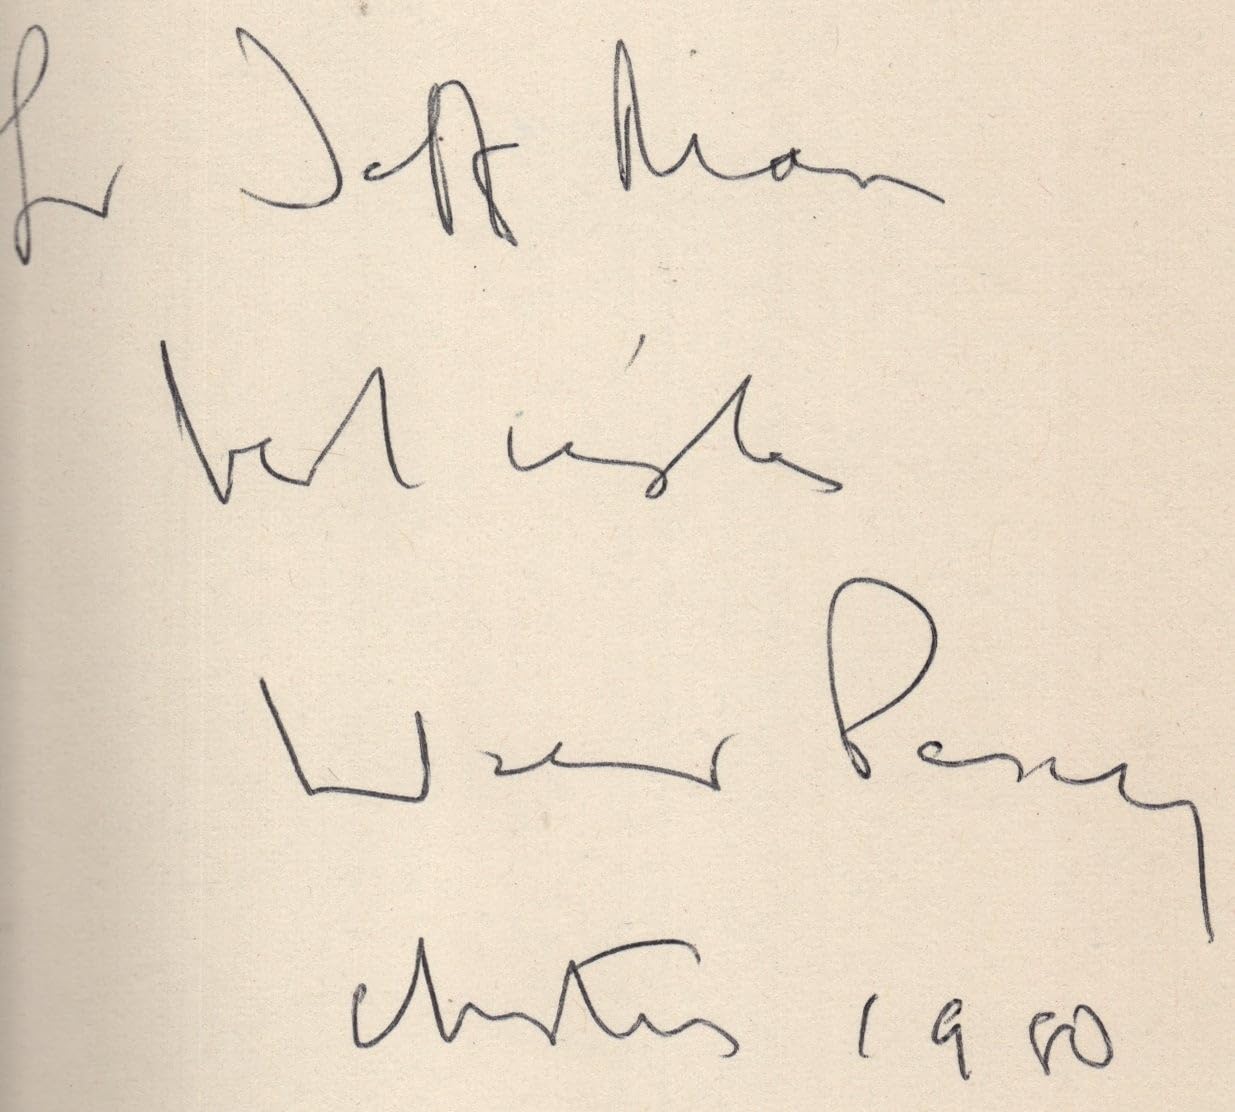 For Jeff Rian
best wishes
Walker Percy
Christmas 1980